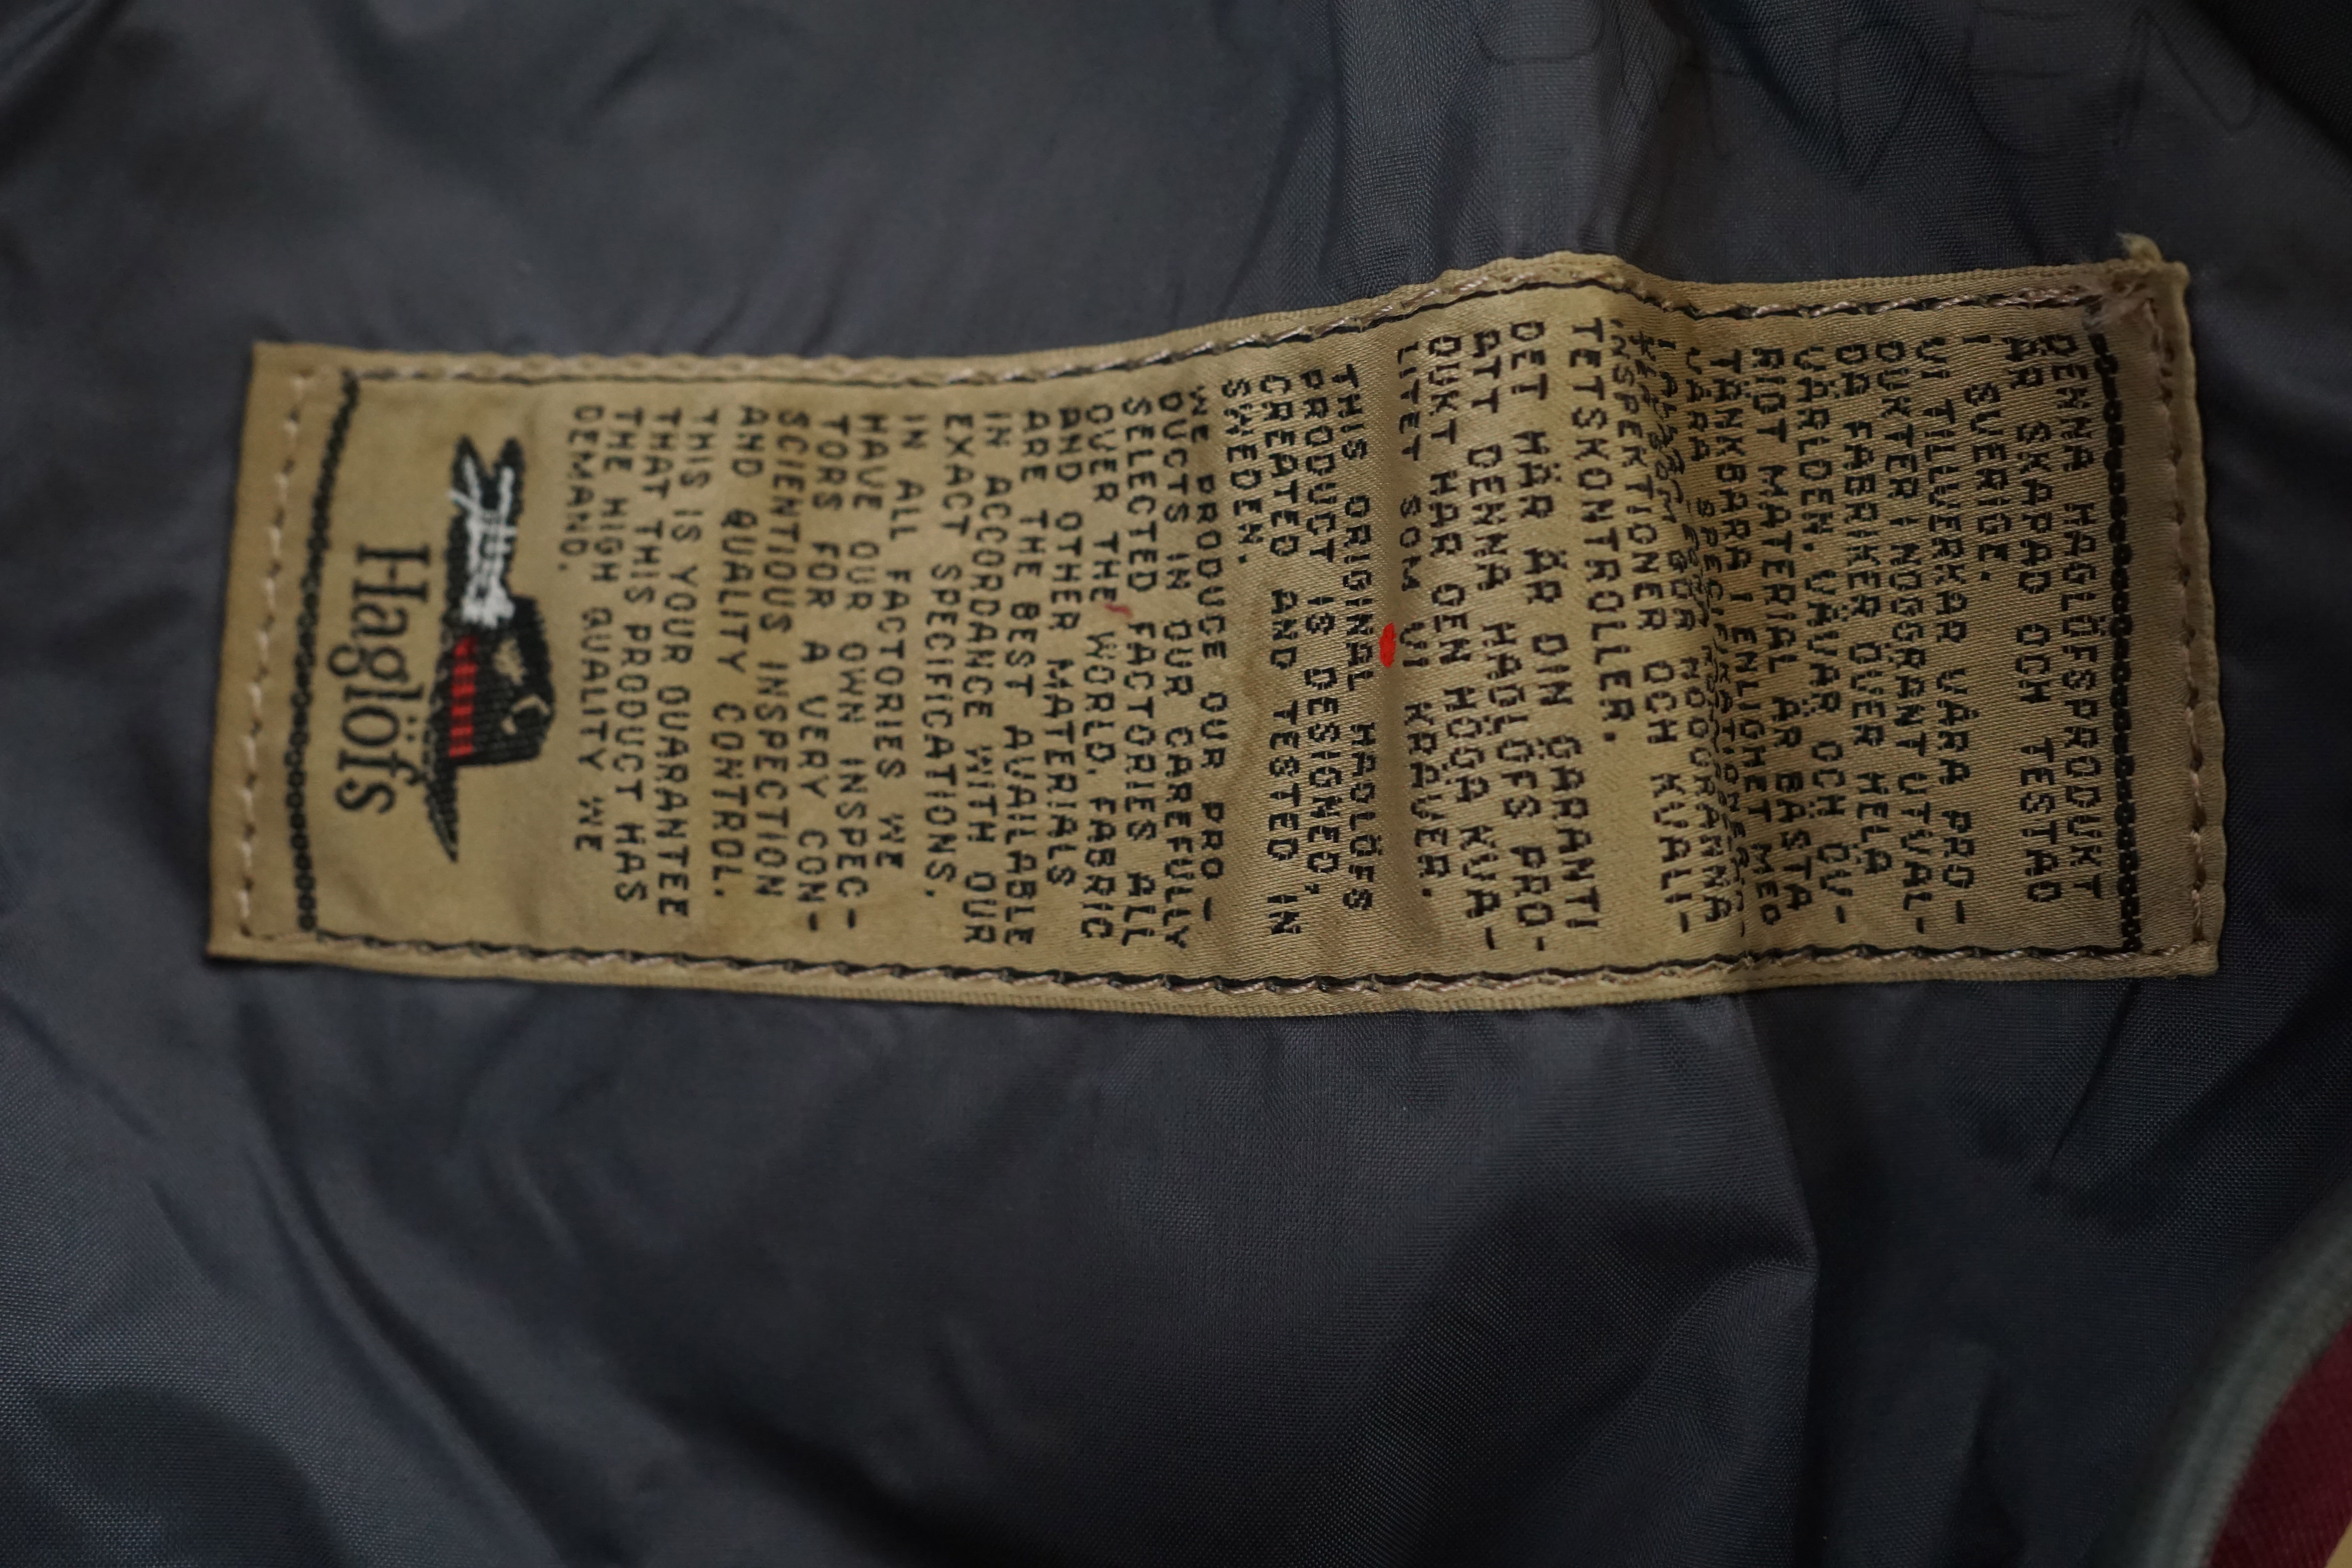 DENNA HAGLÖFSPRODUKT
ÄR SKAPAD OCH TESTAD
I SVERIGE.
VI TILLVERKAR VÅRA PRO-
DUKTER I NOGGRANT UTVAL-
DA FABRIKER ÖVER HELA
VÄRLDEN. VÄVAR OCH ÖV-
RIGT MATERIAL ÄR BÄSTA
TÄNKBARA I ENLIGHET MED
VÅRA
INSPEKTIONER OCH KVALI-
TETSKONTROLLER.
DET HÄR ÄR DIN GARANTI
ATT DENNA HAGLÖFS PRO-
DUKT HAR DEN HÖGA KVA-
LITET SOM VI KRÄVER.
THIS ORIGINAL HAGLÖFS
PRODUCT IS DESIGNED,
CREATED AND TESTED IN
SWEDEN.
WE PRODUCE OUR PRO-
DUCTS IN OUR CAREFULLY
SELECTED FACTORIES ALL
OVER THE WORLD. FABRIC
AND OTHER MATERIALS
ARE THE BEST AVAILABLE
IN ACCORDANCE WITH OUR
EXACT SPECIFICATIONS.
IN ALL FACTORIES WE
HAVE OUR OWN INSPEC-
TORS FOR A VERY CON-
SCIENTIOUS INSPECTION
AND QUALITY CONTROL.
THIS IS YOUR GUARANTEE
THAT THIS PRODUCT HAS
THE HIGH QUALITY WE
DEMAND.
Haglöfs